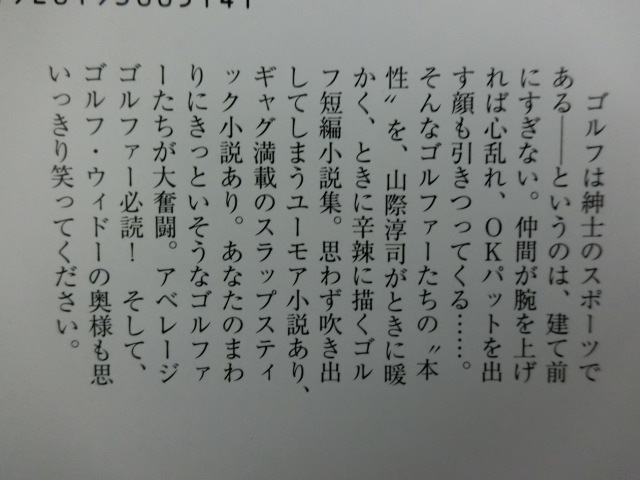 ゴルフは紳士のスポーツで
ある――というのは、建て前
にすぎない。仲間が腕を上げ
れば心乱れ、OKパットを出
す顔も引きつってくる……。
そんなゴルファーたちの〝本
性〟を、山際淳司がときに暖
かく、ときに辛辣に描くゴル
フ短編小説集。思わず吹き出
してしまうユーモア小説あり、
ギャグ満載のスラップスティ
ック小説あり。あなたのまわ
りにきっといそうなゴルファ
ーたちが大奮闘。アベレージ
ゴルファー必読！　そして、
ゴルフ・ウィドーの奥様も思
いっきり笑ってください。